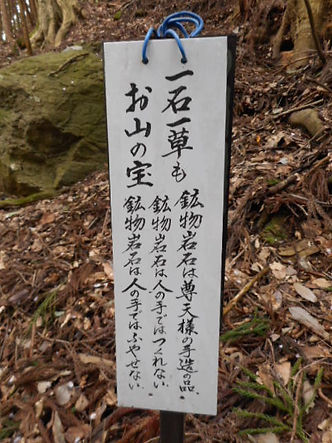 一石一草も
お山の宝
鉱物岩石は尊天様の手造の品
鉱物岩石は人の手ではつくれない
鉱物岩石は人の手ではふやせない